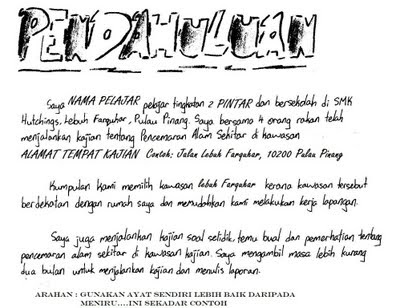 PENDAHULUAN
Saya NAMA PELAJAR pelajar tingkatan 2 PINTAR dan bersekolah di SMK
Hutchings, Lebuh Farquhar, Pulau Pinang. Saya bersama 4 orang rakan telah
menjalankan kajian tentang Pencemaran Alam Sekitar di kawasan
ALAMAT TEMPAT KAJIAN Contoh: Jalan Lebuh Farquhar, 10200 Pulau Pinang
Kumpulan kami memilih kawasan lebuh Farquhar kerana kawasan tersebut
berdekatan dengan rumah saya dan memudahkan kami melakukan kerja lapangan.
Saya juga menjalankan kajian soal selidik, temu bual dan pemerhatian tentang
pencemaran alam sekitar di kawasan kajian. Saya mengambil masa lebih kurang
dua bulan untuk menjalankan kajian dan menulis laporan.
ARAHAN : GUNAKAN AYAT SENDIRI LEBIH BAIK DARIPADA
MENIRU....INI SEKADAR CONTOH